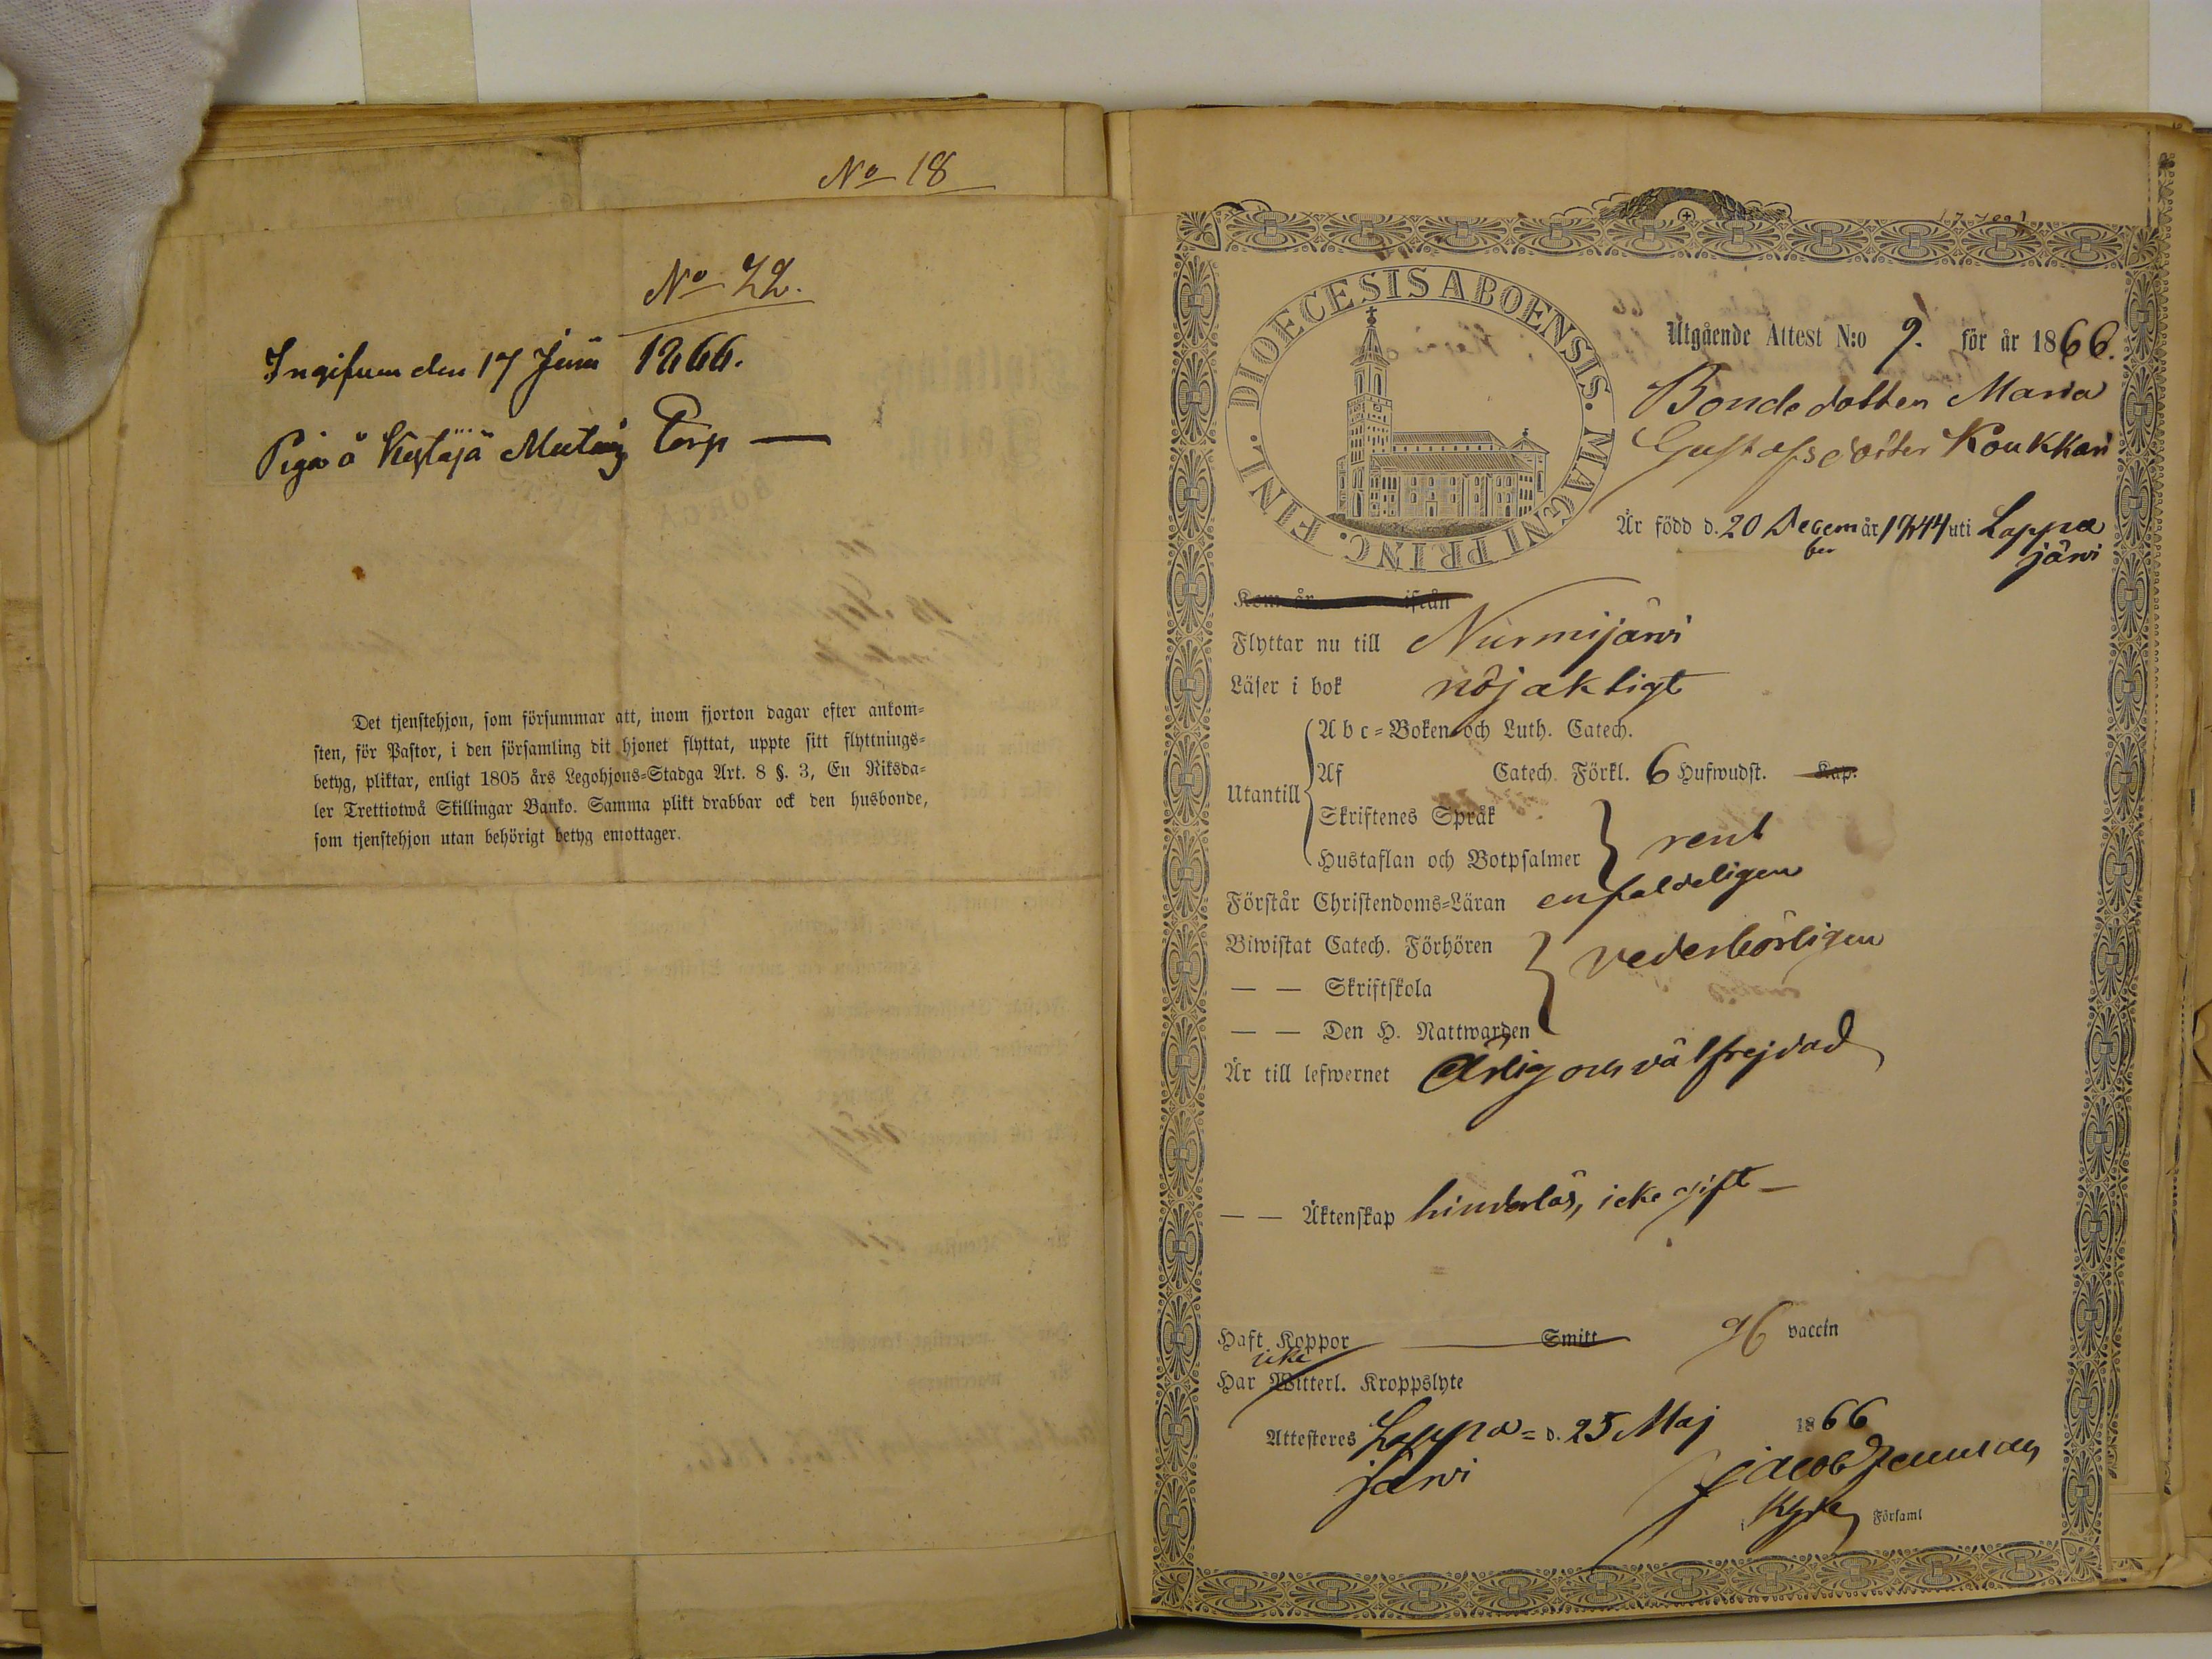 No 18
No 22.
Ingifven den 17 Junii 1866.
Piga å Torp —
Det tjenstehjon, som försummar att, inom fjorton dagar efter ankom=
sten, för Pastor, i den församling dit hjonet flyttat, uppte sitt flyttnings=
betyg, pliktar, enligt 1805 års Legohjons=Stadga Art. 8 §. 3, En Riksda=
ler Trettiotwå Skillingar Banko. Samma plikt drabbar ock den husbonde,
som tjenstehjon utan behörigt betyg emottager.
DIOECESIS ABOENSIS. MAGNI PRINC. FINL.
Utgående Attest N:o 9. för år 1866.
Bondedotten Maria
Gustafsdotter Koukkari
Är född d. 20 Decem ber år 1844 uti Lappa
järvi
Kom år ifrån
Flyttar nu till Nurmijärvi
Läser i bok nöjaktigt
Utantill
A b c = Boken och Luth. Catech.
Af Catech. Förkl. 6 Hufwudst. Kap.
Skriftenes Språk
Hustaflan och Botpsalmer
rent
Förstår Christendoms=Läran enfaldeligen
Biwistat Catech. Förhören vederbörligen
— — Skriftskola
— — Den H. Nattwarden
Är till lefwernet Ärlig och välfrejdad
— — Äktenskap hinderlös, icke gift —
Haft Koppor Smitt vaccin
icke
Har Witterl. Kroppslyte
Attesteres Lappa= d. 25 Maj 1866
järvi
Jacob
Församl